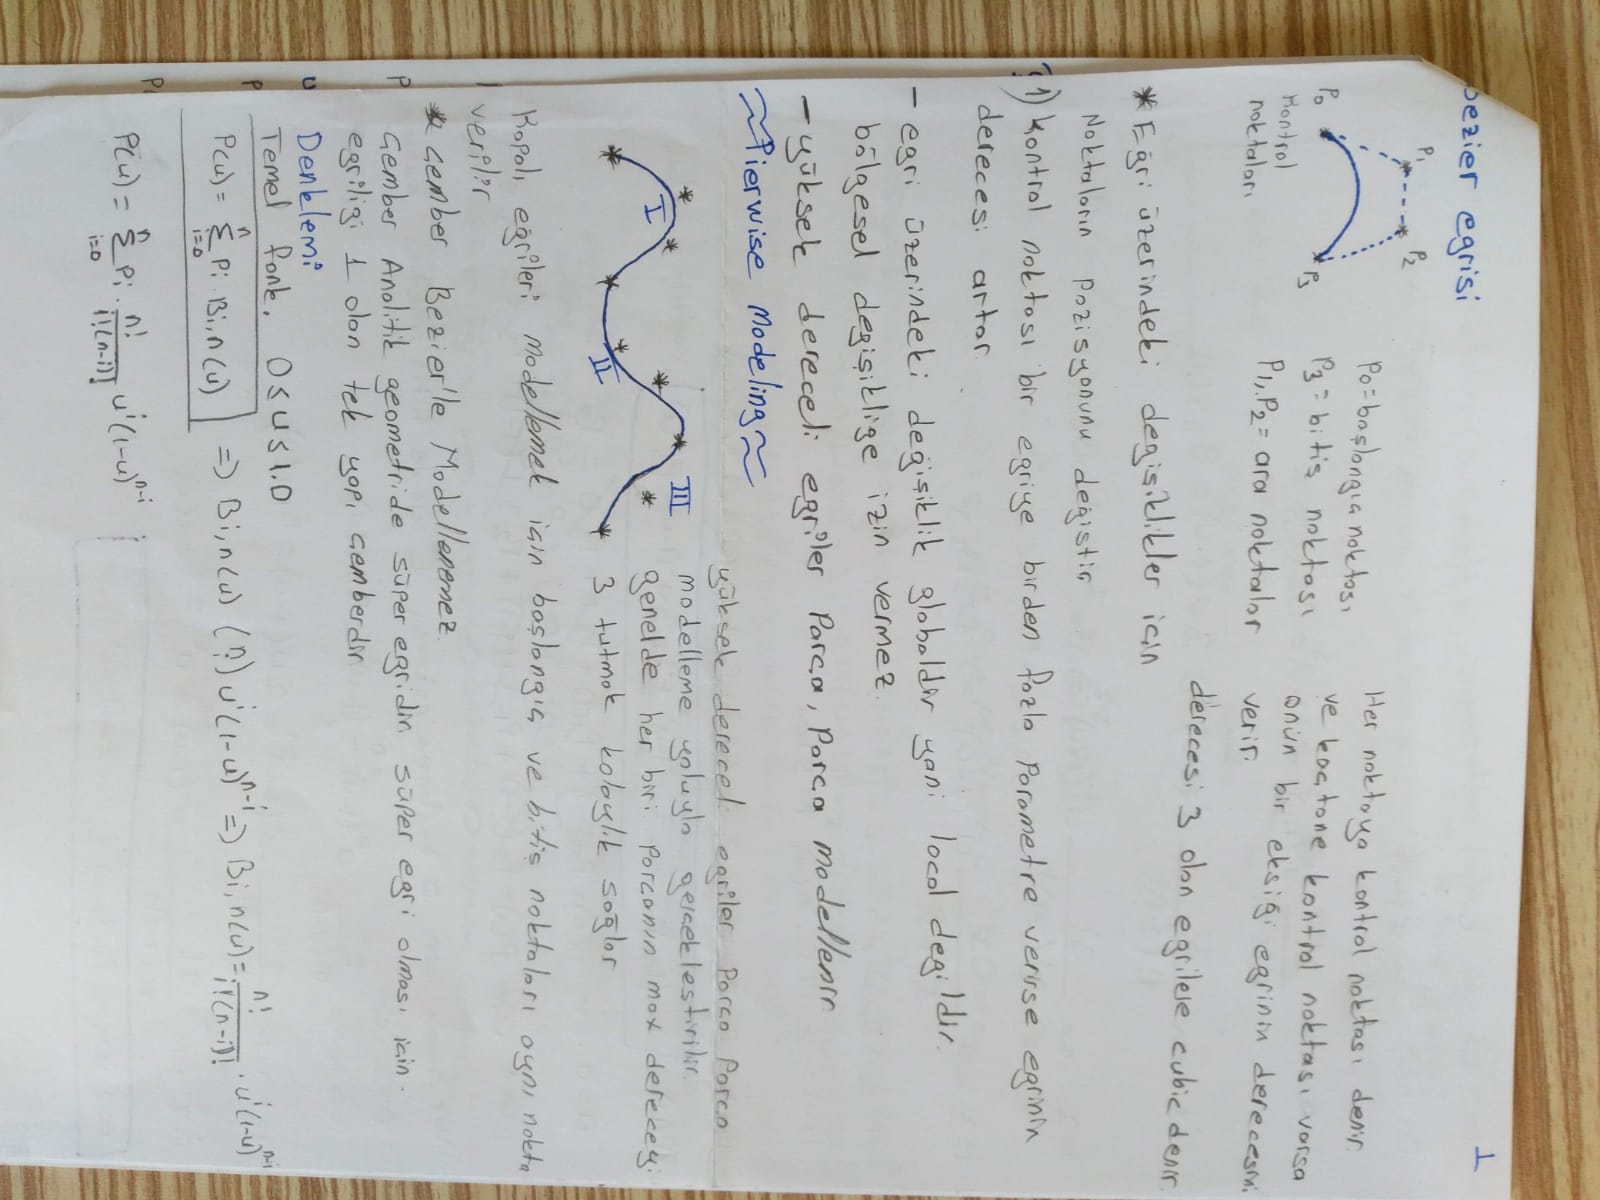 bezier egrisi
1
P0
P1
P2
P3
Kontrol
noktaları
P0=başlongıç noktası
P3=bitiş noktası
P1,P2= ara noktalar
Her noktaya kontrol noktası denir
ve kaç tane kontrol noktası varsa
onun bir eksiği egrinin derecesini
verir.
derecesi 3 olan egrilere cubic denir.
* Eğri üzerindeki degişiklikler için
Noktaların pozisyonunu değiştir
1) kontrol noktası bir egriye birden fazla parametre verirse egrinin
derecesi artar.
- egri üzerindeki değişiklik globaldir yani local değildir.
bölgesel değişikliğe izin vermez.
- yüksek dereceli egriler Parça, Parça modellenir
~Pierwise Modeling~
I
II
III
yüksek dereceli egriler Parça Parça
modelleme yoluyla gerçekleştirilir.
genelde her biri parçanın max dereceyi
3 tutmak kolaylık sağlar
Kapalı eğrileri modellemek için başlongıç ve bitiş noktaları aynı nokta
verilir
* Çember Bezier'le Modellenemez.
Çember Analitik geometride süper egridir süper egri olması için.
egriligi 1 olan tek yapı çemberdir.
Denklemi
Temel fonk. 0≤u≤1.0
P(u) = n∑i=0 Pi · Bi,n(u) => Bi,n(u) (n i) u^i (1-u)^n-i => Bi,n(u) = n!/i!(n-i)! · u^i (1-u)^n-i
P(u) = n∑i=0 Pi · n!/i!(n-i)! u^i (1-u)^n-i